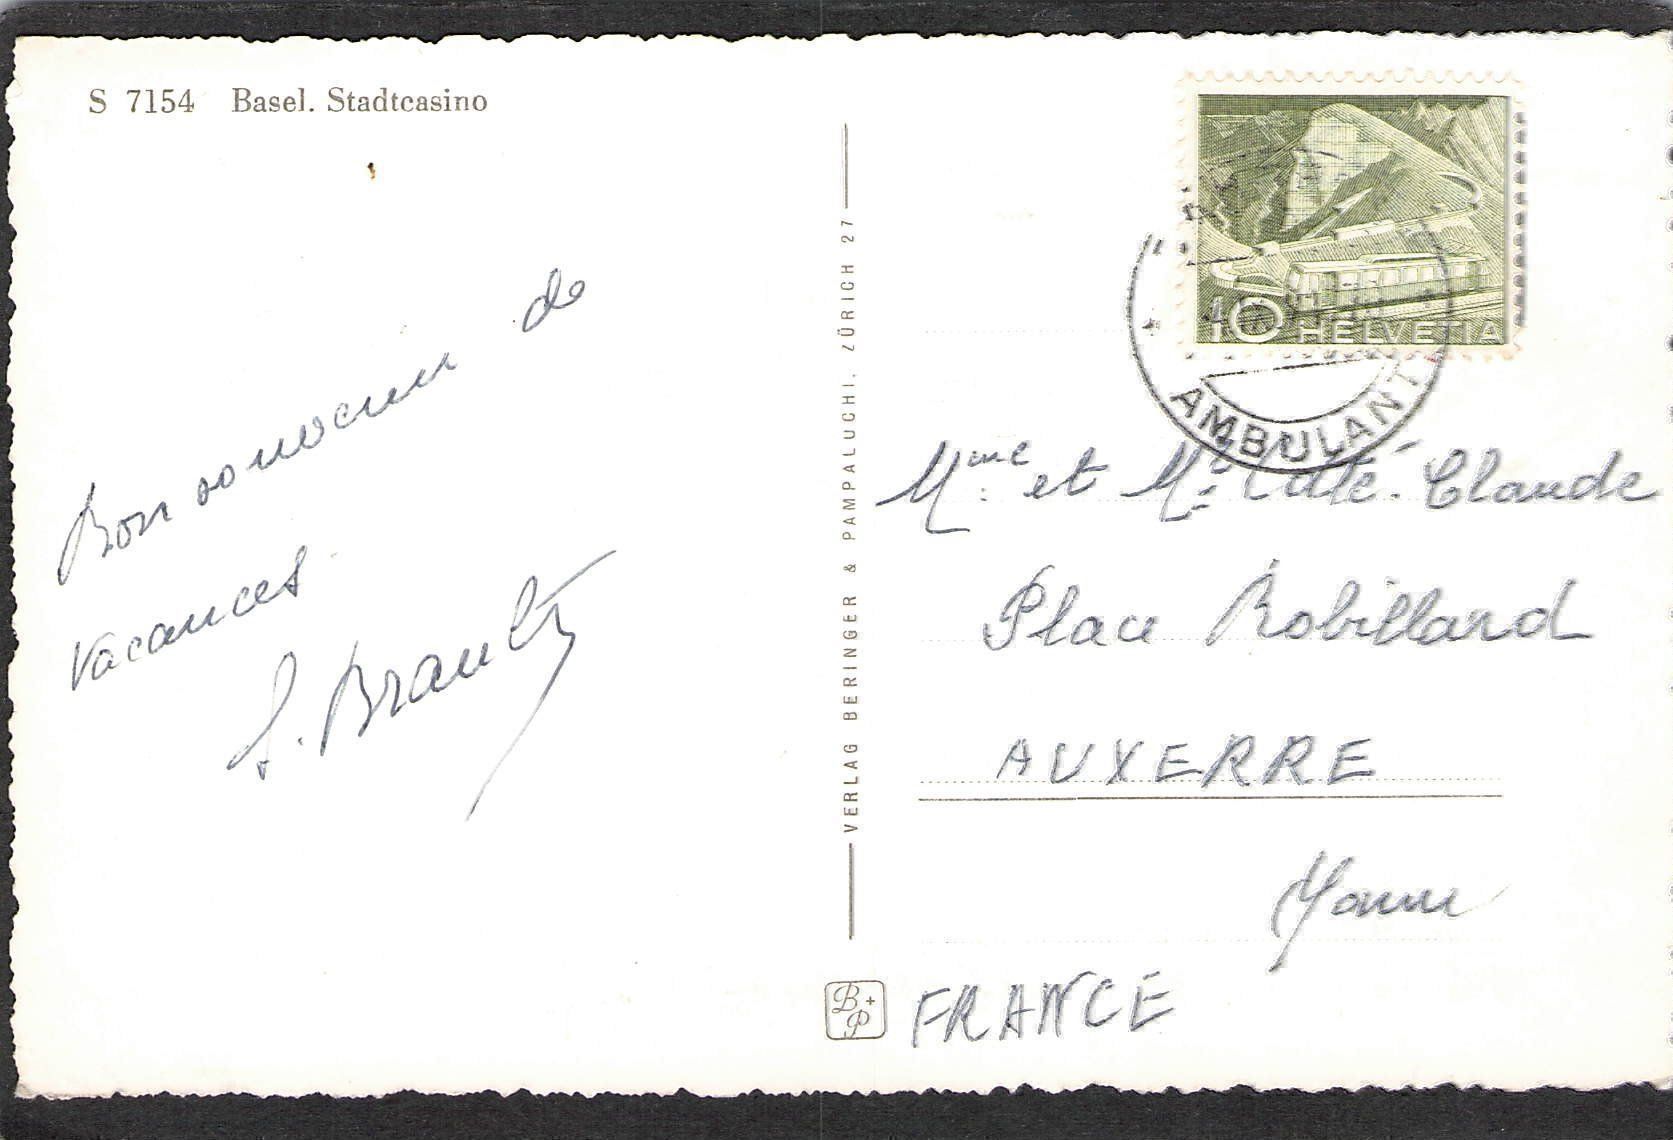 S 7154 Basel. Stadtcasino
Bon souvenir de
vacances
VERLAG BERINGER & PAMPALUCHI, ZÜRICH 27
B+P
10 HELVETIA
AMBULANT
Mme et Mr Claude
Place Robillard
AUXERRE
Yonne
FRANCE